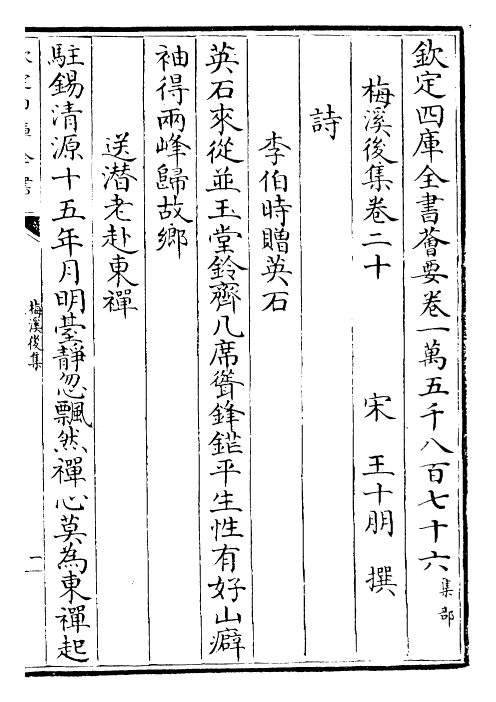 欽定四庫全書薈要卷一萬五千八百七十六集部
梅溪後集卷二十　宋　王十朋　撰
詩
李伯時贈英石
英石來從並玉堂鈴齊几席聳鋒鋩平生性有好山癖
袖得兩峰歸故鄉
送潛老赴東禪
駐錫清源十五年月明臺靜忽飄然禪心莫為東禪起
梅溪後集
一